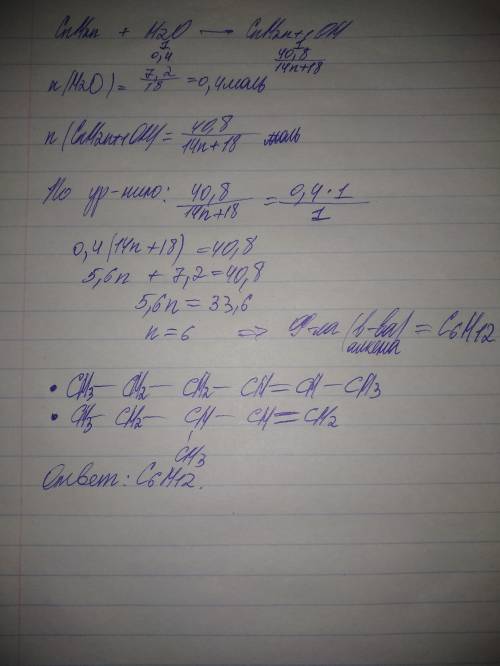 CnH2n + H2O → CnH2n+1OH
1 1
0,4 40,8/14n+18
n(H2O) = 7,2/18 = 0,4 моль
n(CnH2n+1OH) = 40,8/14n+18 моль
По ур-нию: 40,8/14n+18 = 0,4·1/1
0,4(14n+18) = 40,8
5,6n + 7,2 = 40,8
5,6n = 33,6
n = 6 => Ф-ла (в-ва) = C6H12
алкена
• CH3 — CH2 — CH2 — CH = CH — CH3
• CH3 — CH2 — CH — CH = CH2
CH3
Ответ: C6H12.